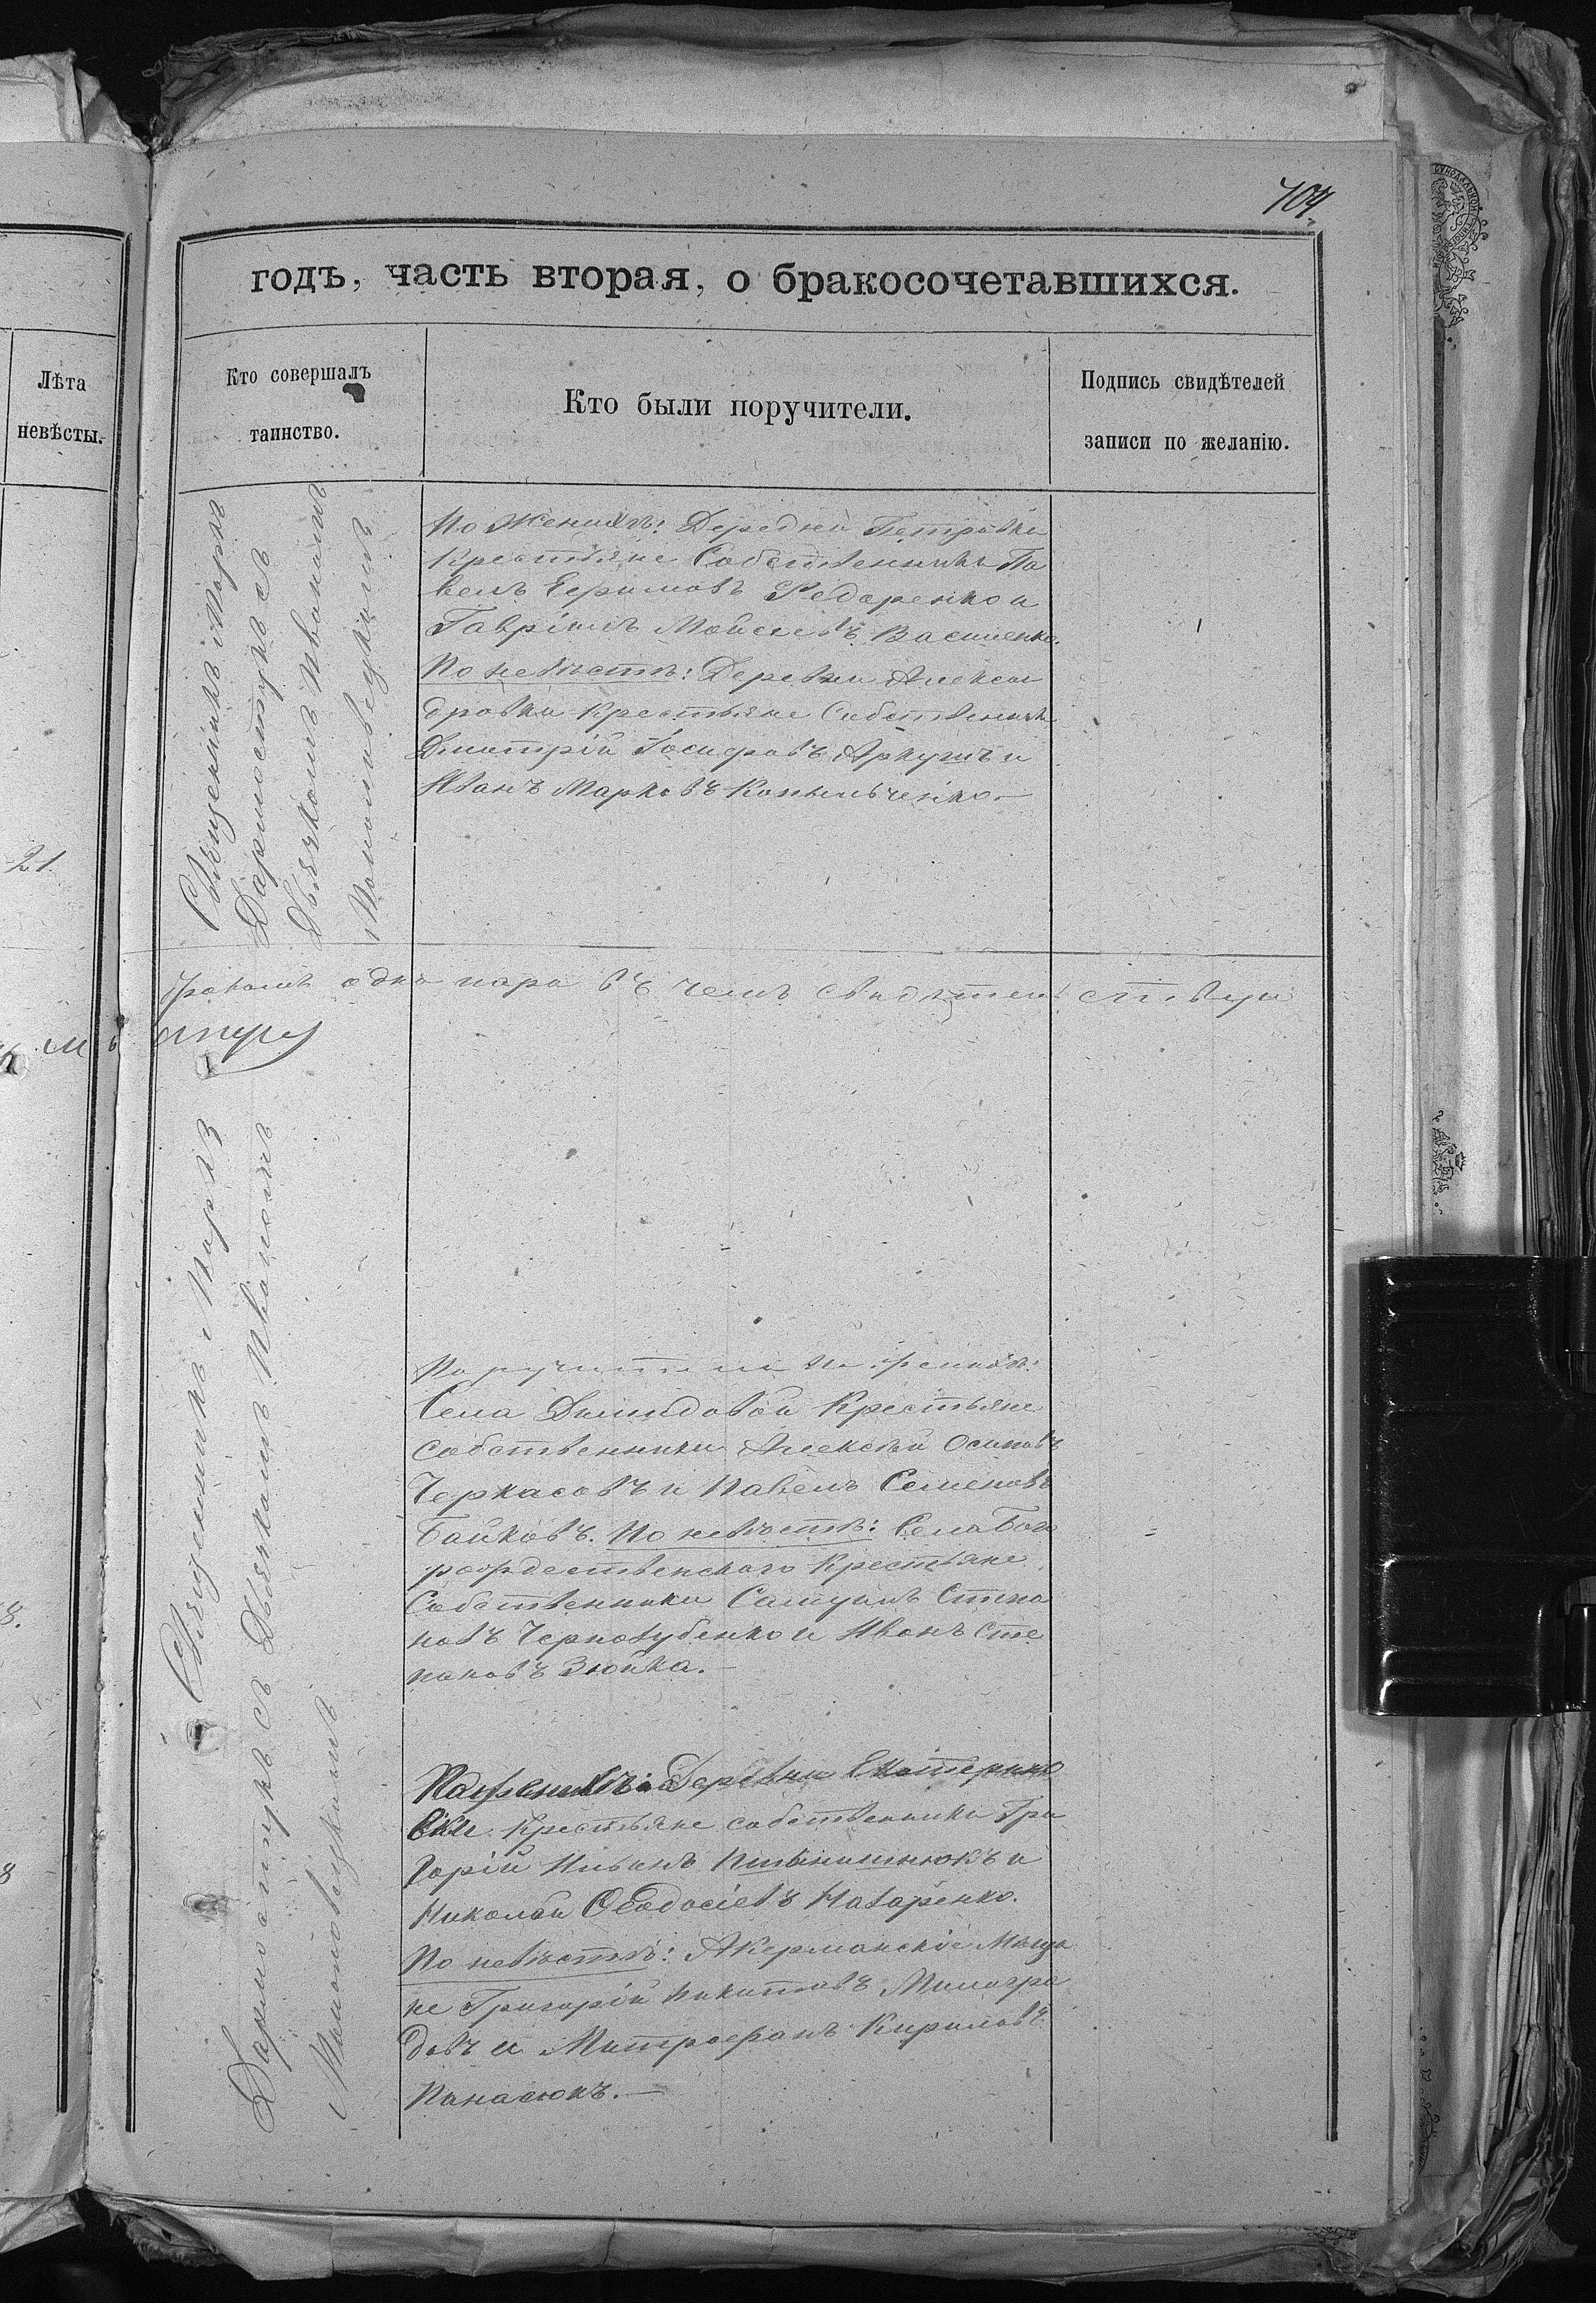 704.
годъ, часть вторая, о бракосочетавшихся.
Лѣта
невѣсты.
Кто совершалъ
таинство.
Кто были поручители.
Подпись свидѣтелей
записи по желанію.
21.
8.
8
Священникъ Маркъ
съ
Дьячкомъ Иваномъ
По Женихѣ: Деревни Петровки
Крестьяне Собственники Па
велъ Ефимовъ Федоренко и
Гавріилъ Моисеевъ Василенко.
По невѣстѣ: Деревни Алексан
дровки Крестьяне Собственники
Дмитрій Іосифовъ и
Иванъ Марковъ
одна пара въ чемъ свидѣтельствую
Священникъ Маркъ
съ Дьячкомъ Иваномъ
Поручители по женихѣ:
Села Крестьяне
собственники Алексѣй Осиповъ
Черкасовъ и Павелъ Семеновъ
Байковъ. По невѣстѣ: Села Бого
рождественскаго Крестьяне
Собственники Самуилъ Степа
новъ Черногубенко и Иванъ Сте
пановъ Зюбка.
По женихѣ: Деревни Екатерино
вки Крестьяне собственники Гри
горій и
Николай Ѳеодосіевъ Назаренко.
По невѣстѣ: Акерманскіе Мѣща
не Григорій Никитовъ Милогра
довъ и Митрофанъ Кириловъ
Панасюкъ.